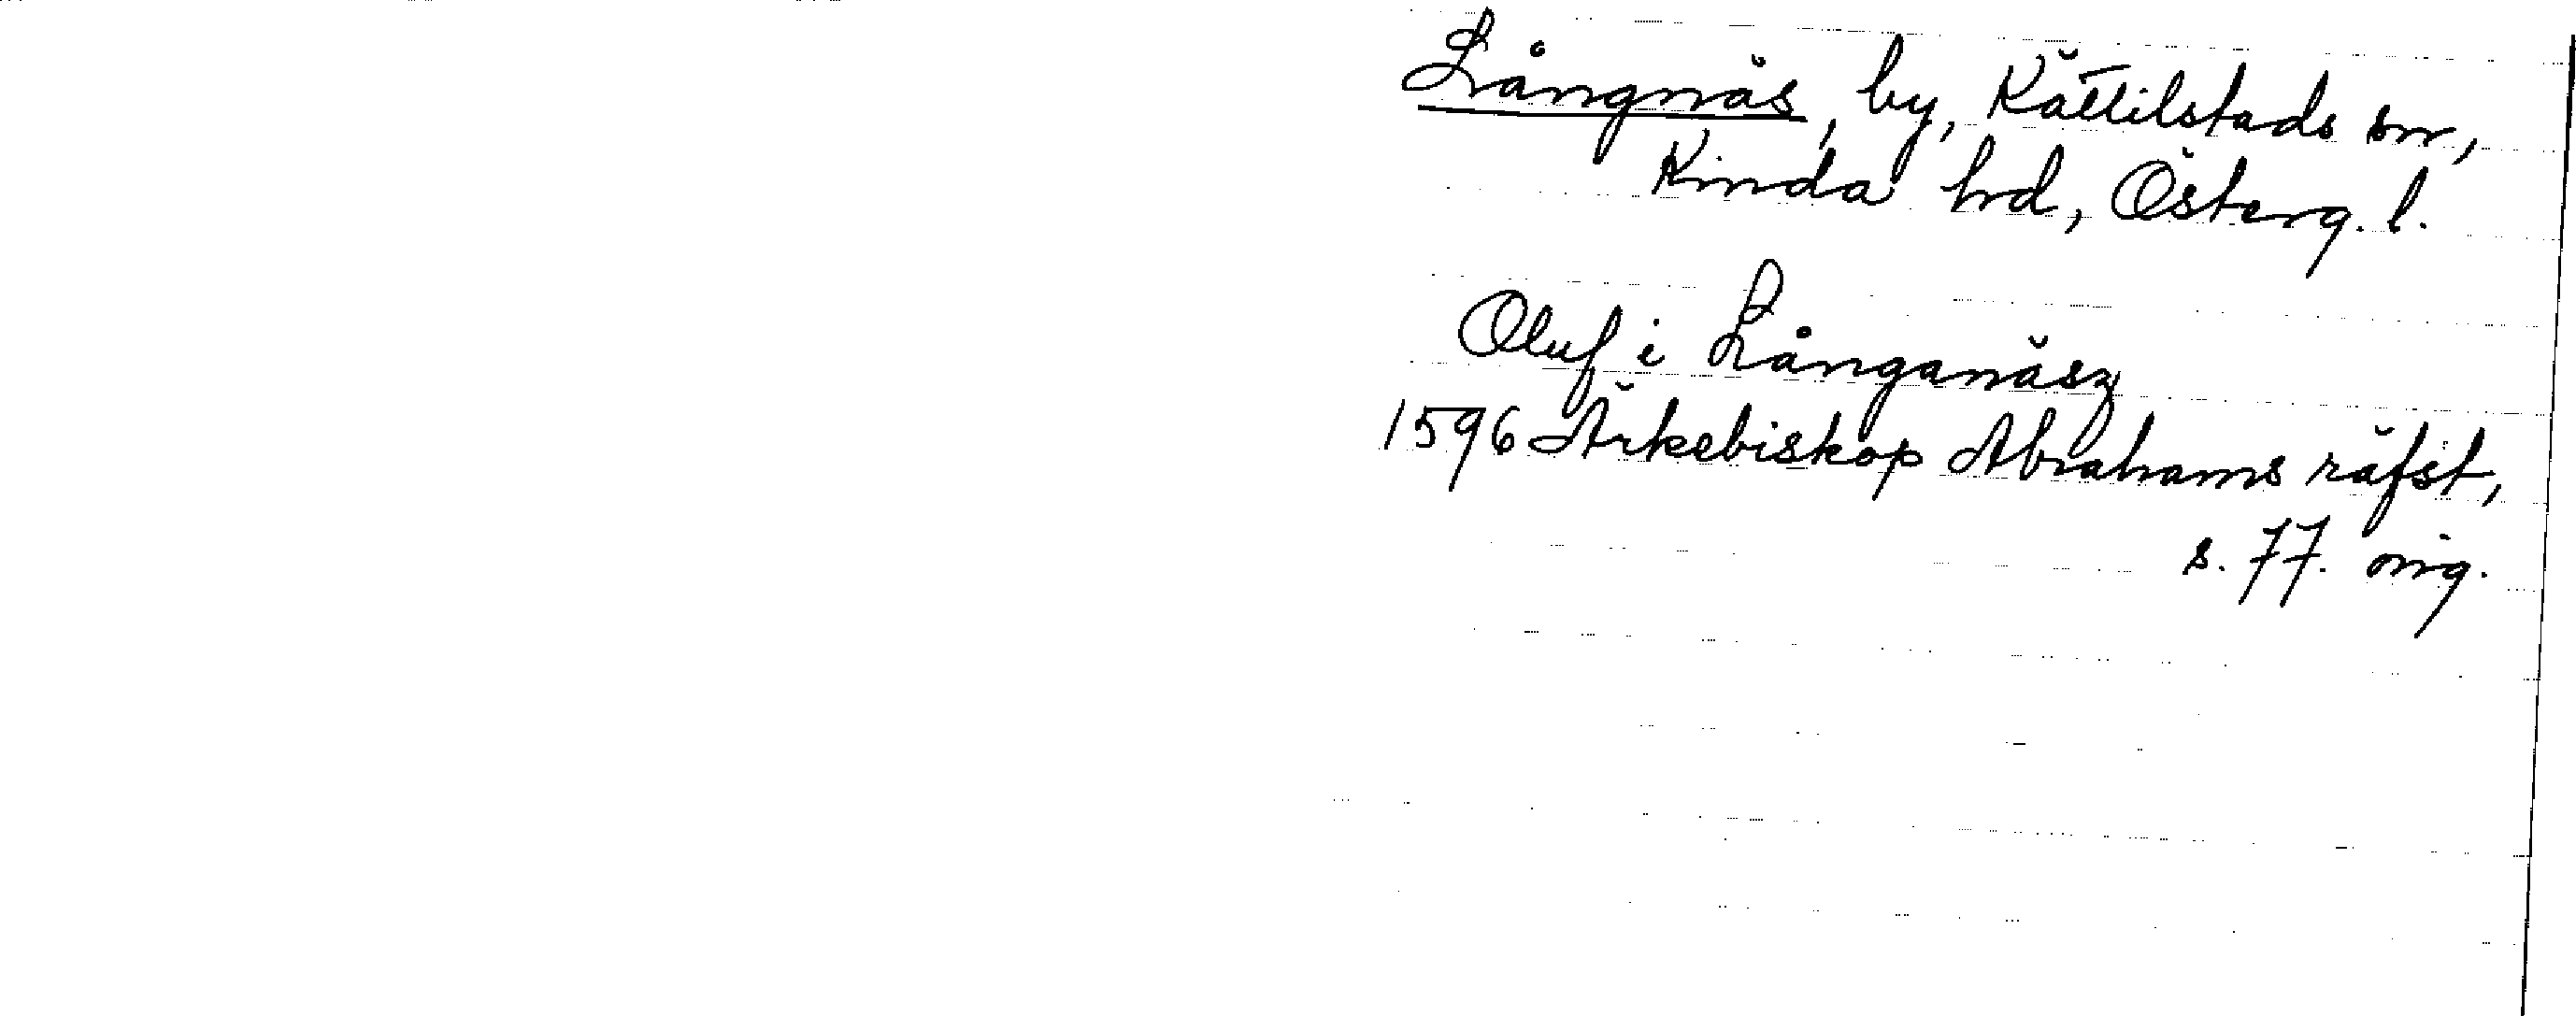 Långnäs, by, Kättilstads sn,
Kinda hd, Österg. l.
Oluf i Långanäsz
1596 Ärkebiskop Abrahams räfst,
s. 77. orig.